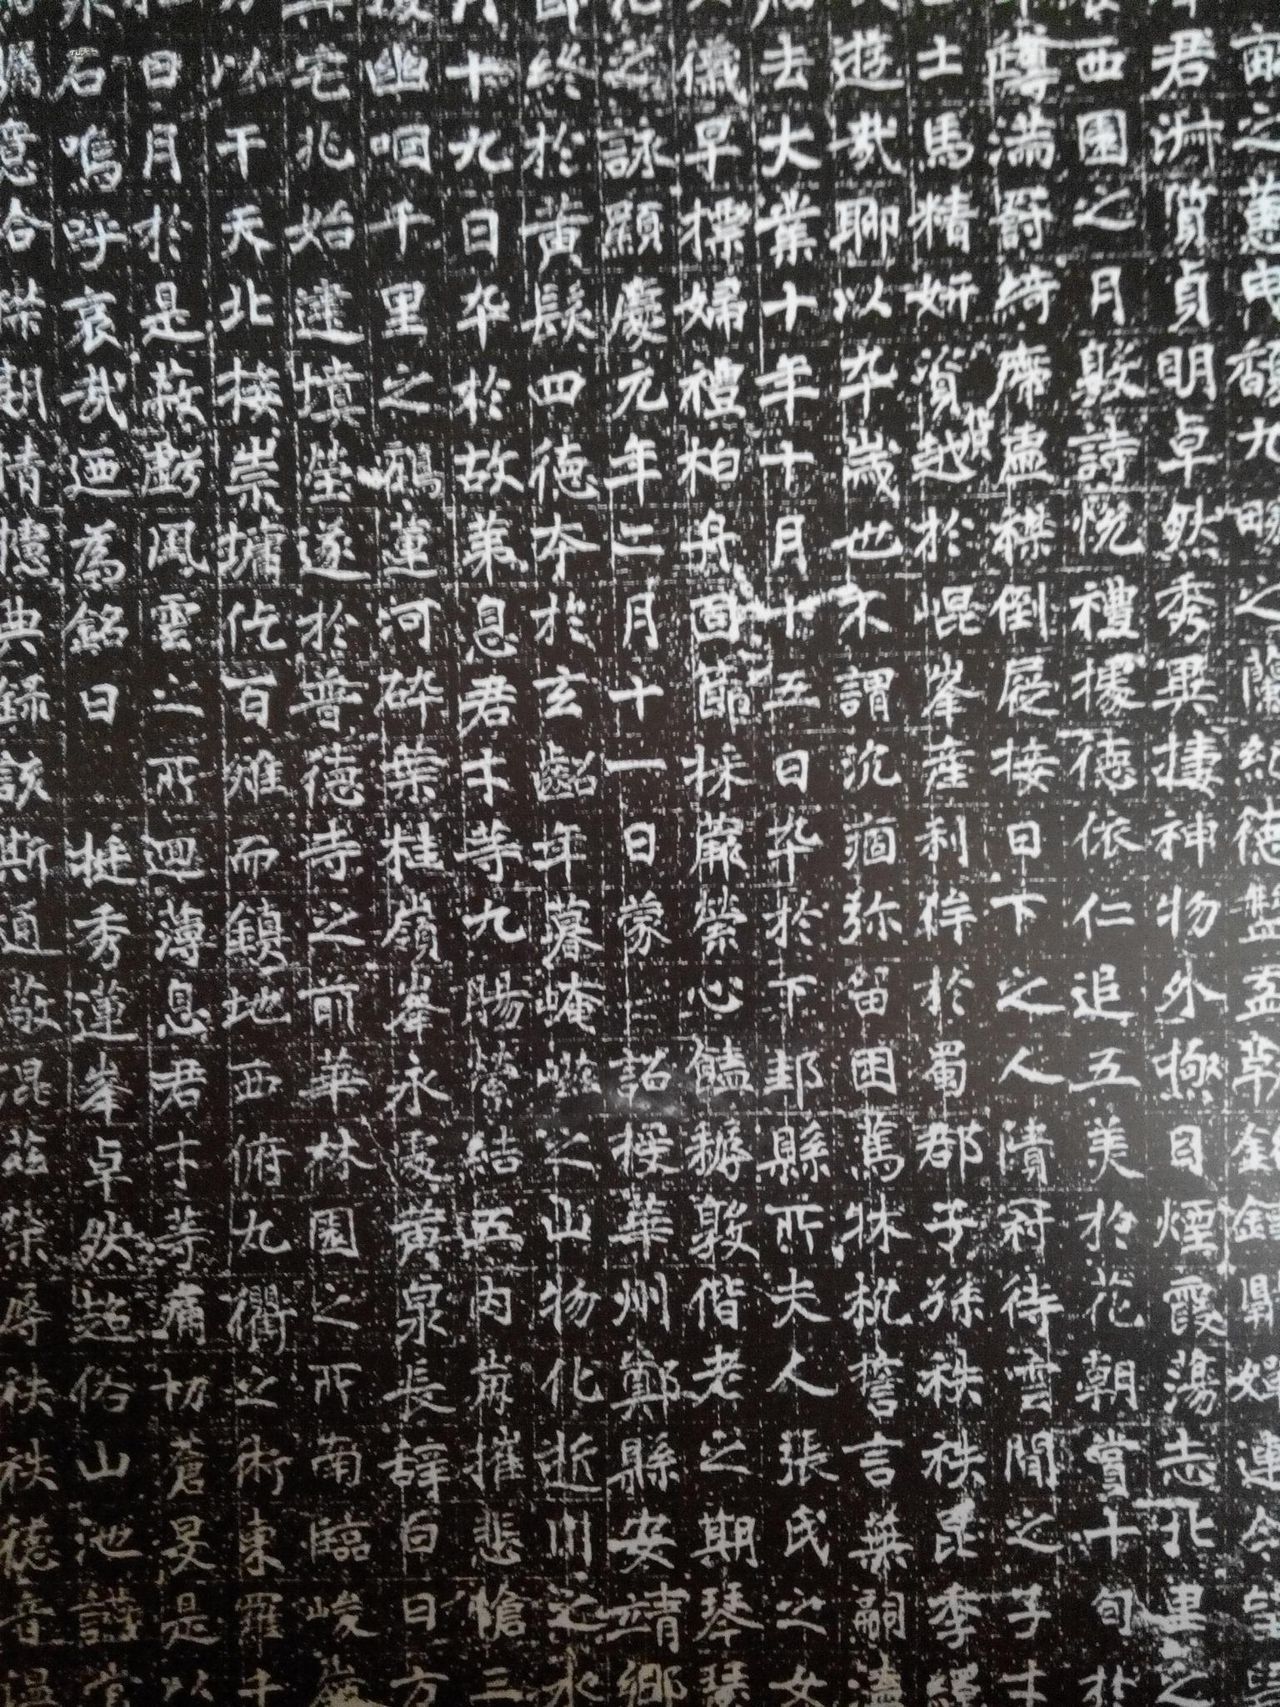 畝之蕙申馥九畹之蘭紀德盤盂
君淋質貞明卓然秀異捿神物外極目煙霞蕩志北里之
西園之月敦詩悅禮據德依仁追五美於花朝嘗十旬於
罇滿罸綺席盧襟倒屣接日下之人清冠待雲間之子才
士馬精妍資越於崐峯產利侔於蜀郡子孫秩秩昆季繩
遊哉聊以卒歲世不謂沉痼弥留困篤牀枕誓言無嗣
去大業十年十月十五日卒於下邽縣所夫人張氏之女
儀早摽婦禮柏舟固節㧱嚴縈心饁耨敦偕老之期琴瑟
之詠顯慶元年二月十一日蒙詔授華州鄭縣安靖鄉
終於黃髮四德夲於玄齠年暮崦嵫之山物化逝川之水
十九日卒於故苐息君才等九陽縈結五內崩摧悲愴三
幽咽千里之鶴蓮河碎葉桂嶺峯永處黃泉長辞白日方
宅兆始建墳塋遂於普德寺之前華林園之所南臨峻
以干天北接崇墉仡百雉而鎮地西俯九衢之術東羅千
日月於是蔽虧風雲之所迴薄息君才等痛切蒼旻是以
石嗚呼哀哉迺為銘曰 挺秀蓮峯卓然超俗山池
意合琴朗情德典錄該斯道敬昆茲榮辱秩秩德音溫